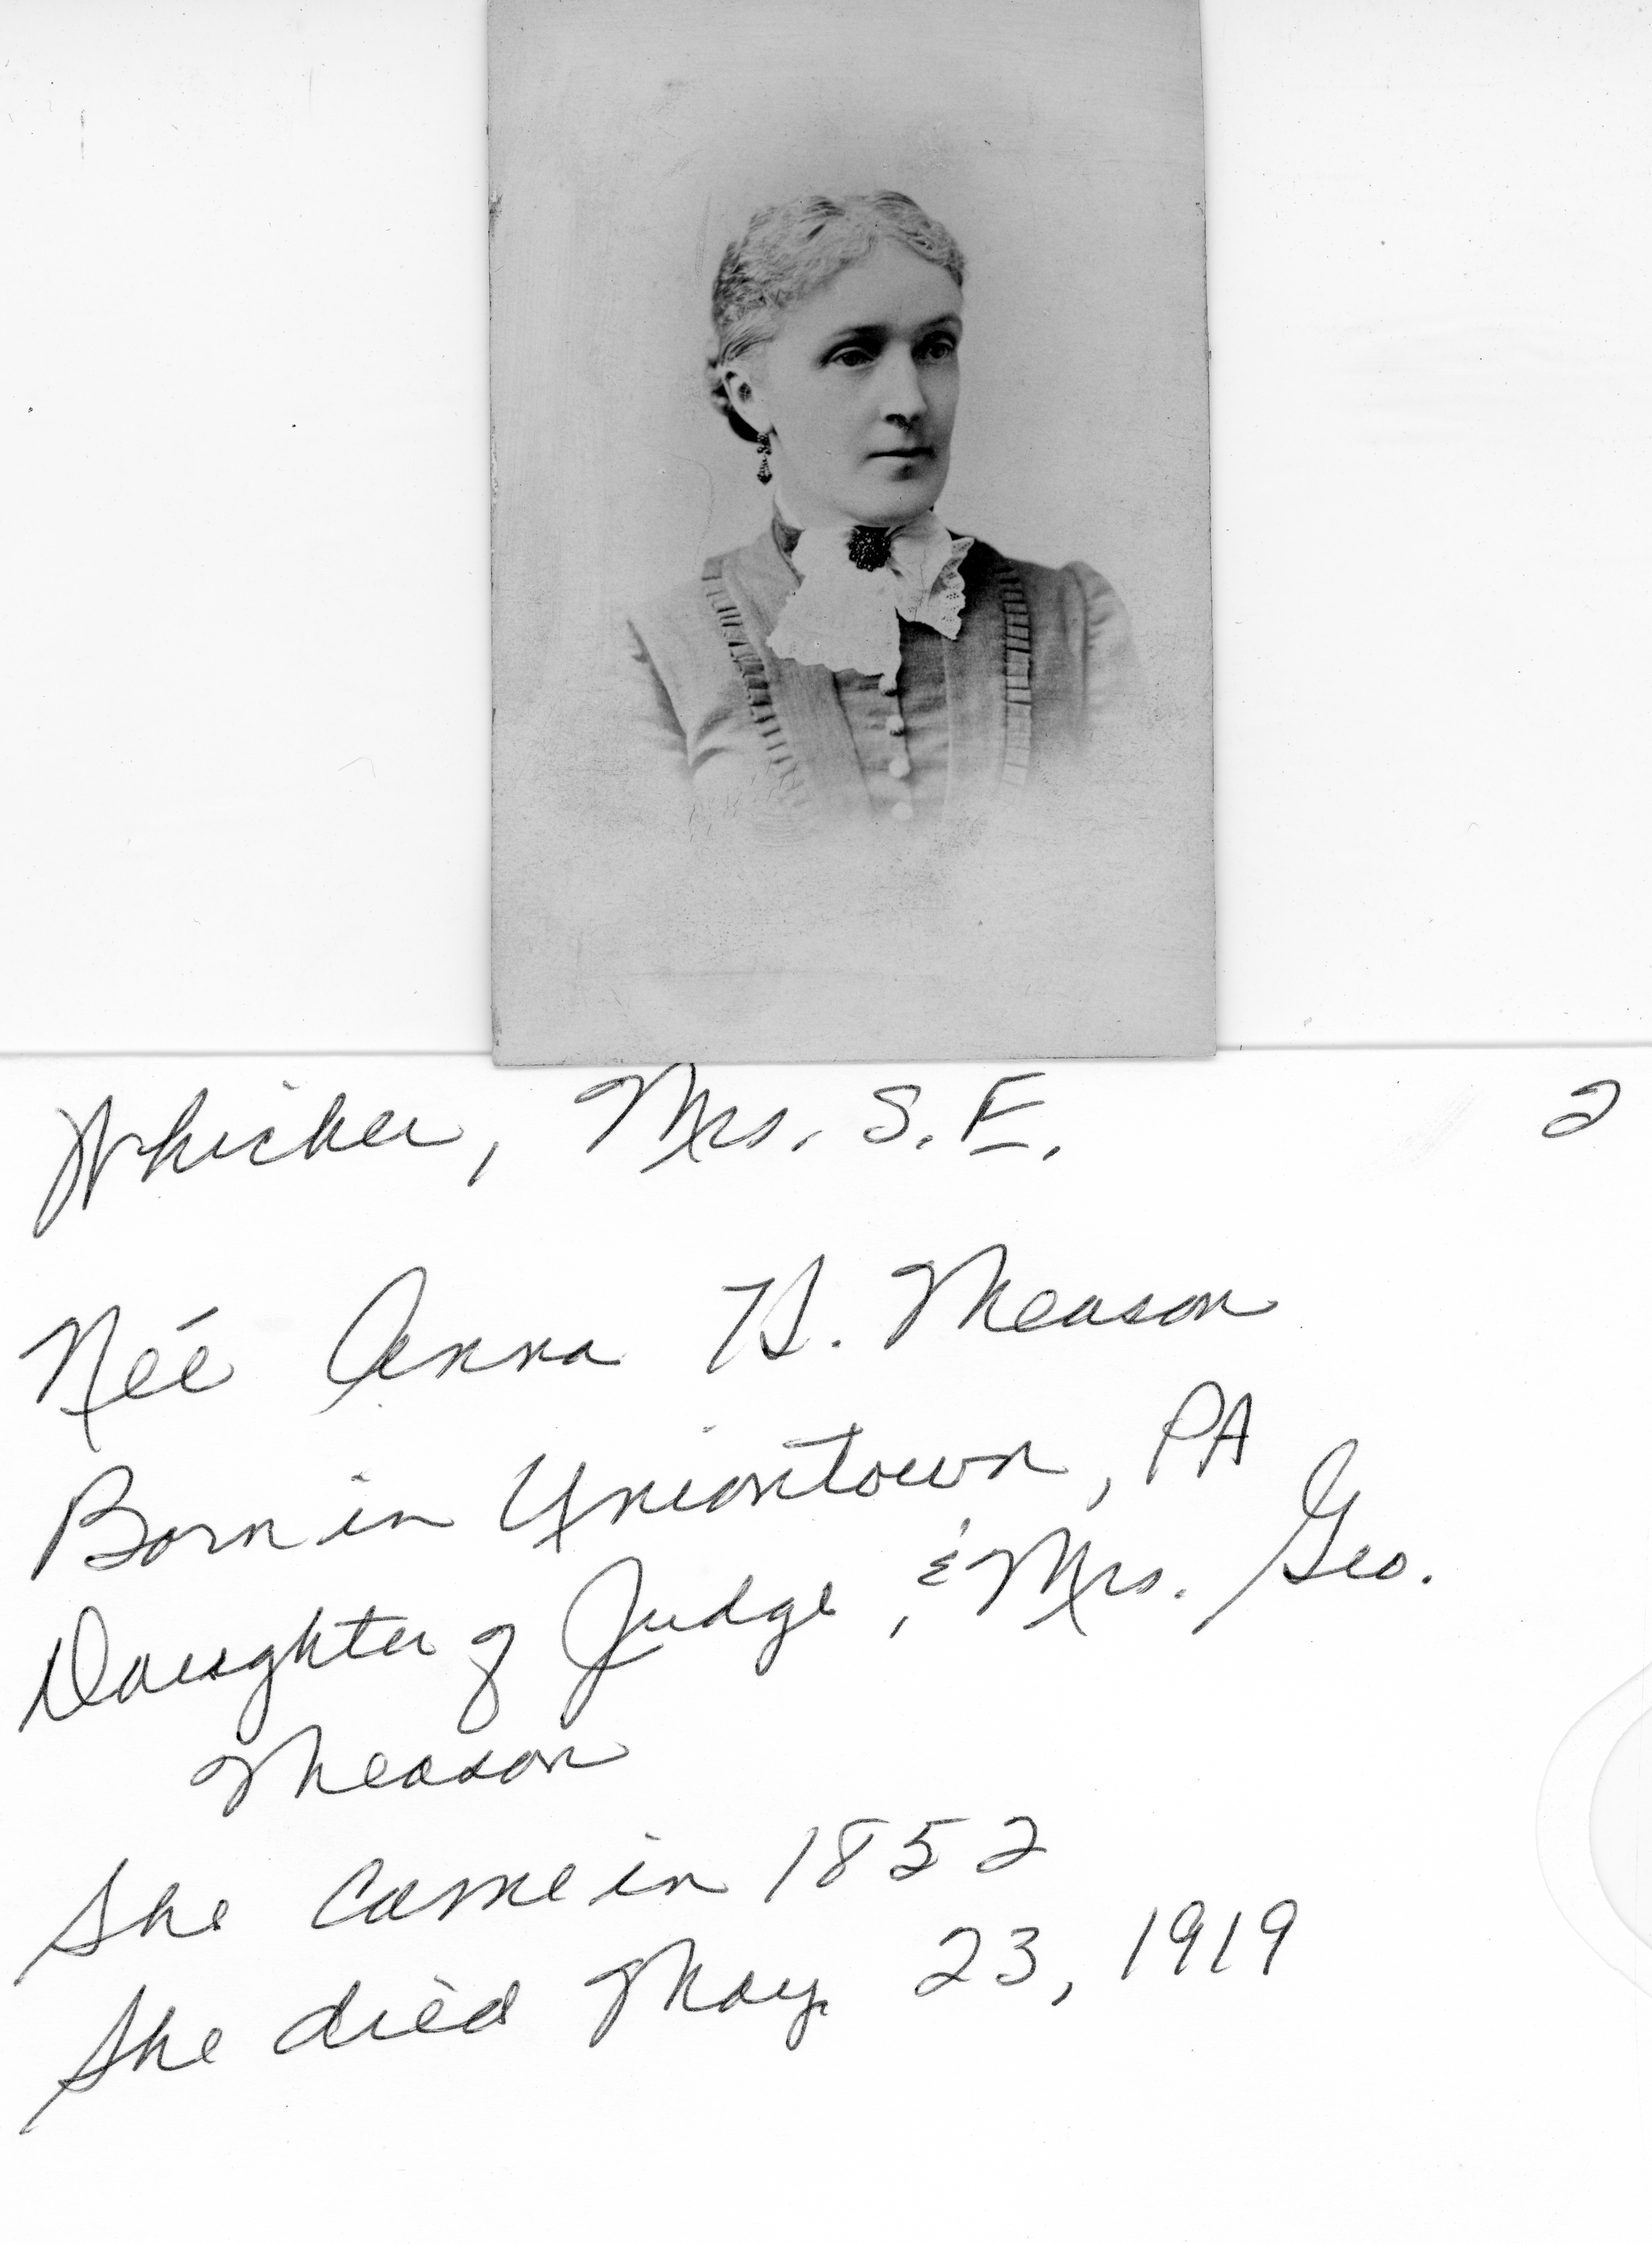 Whicher, Mrs. S. E. 2
Née Anna H. Meason
Born in Uniontown, PA
Daughter of Judge, & Mrs. Geo.
Meason
She came in 1852
She died May 23, 1919